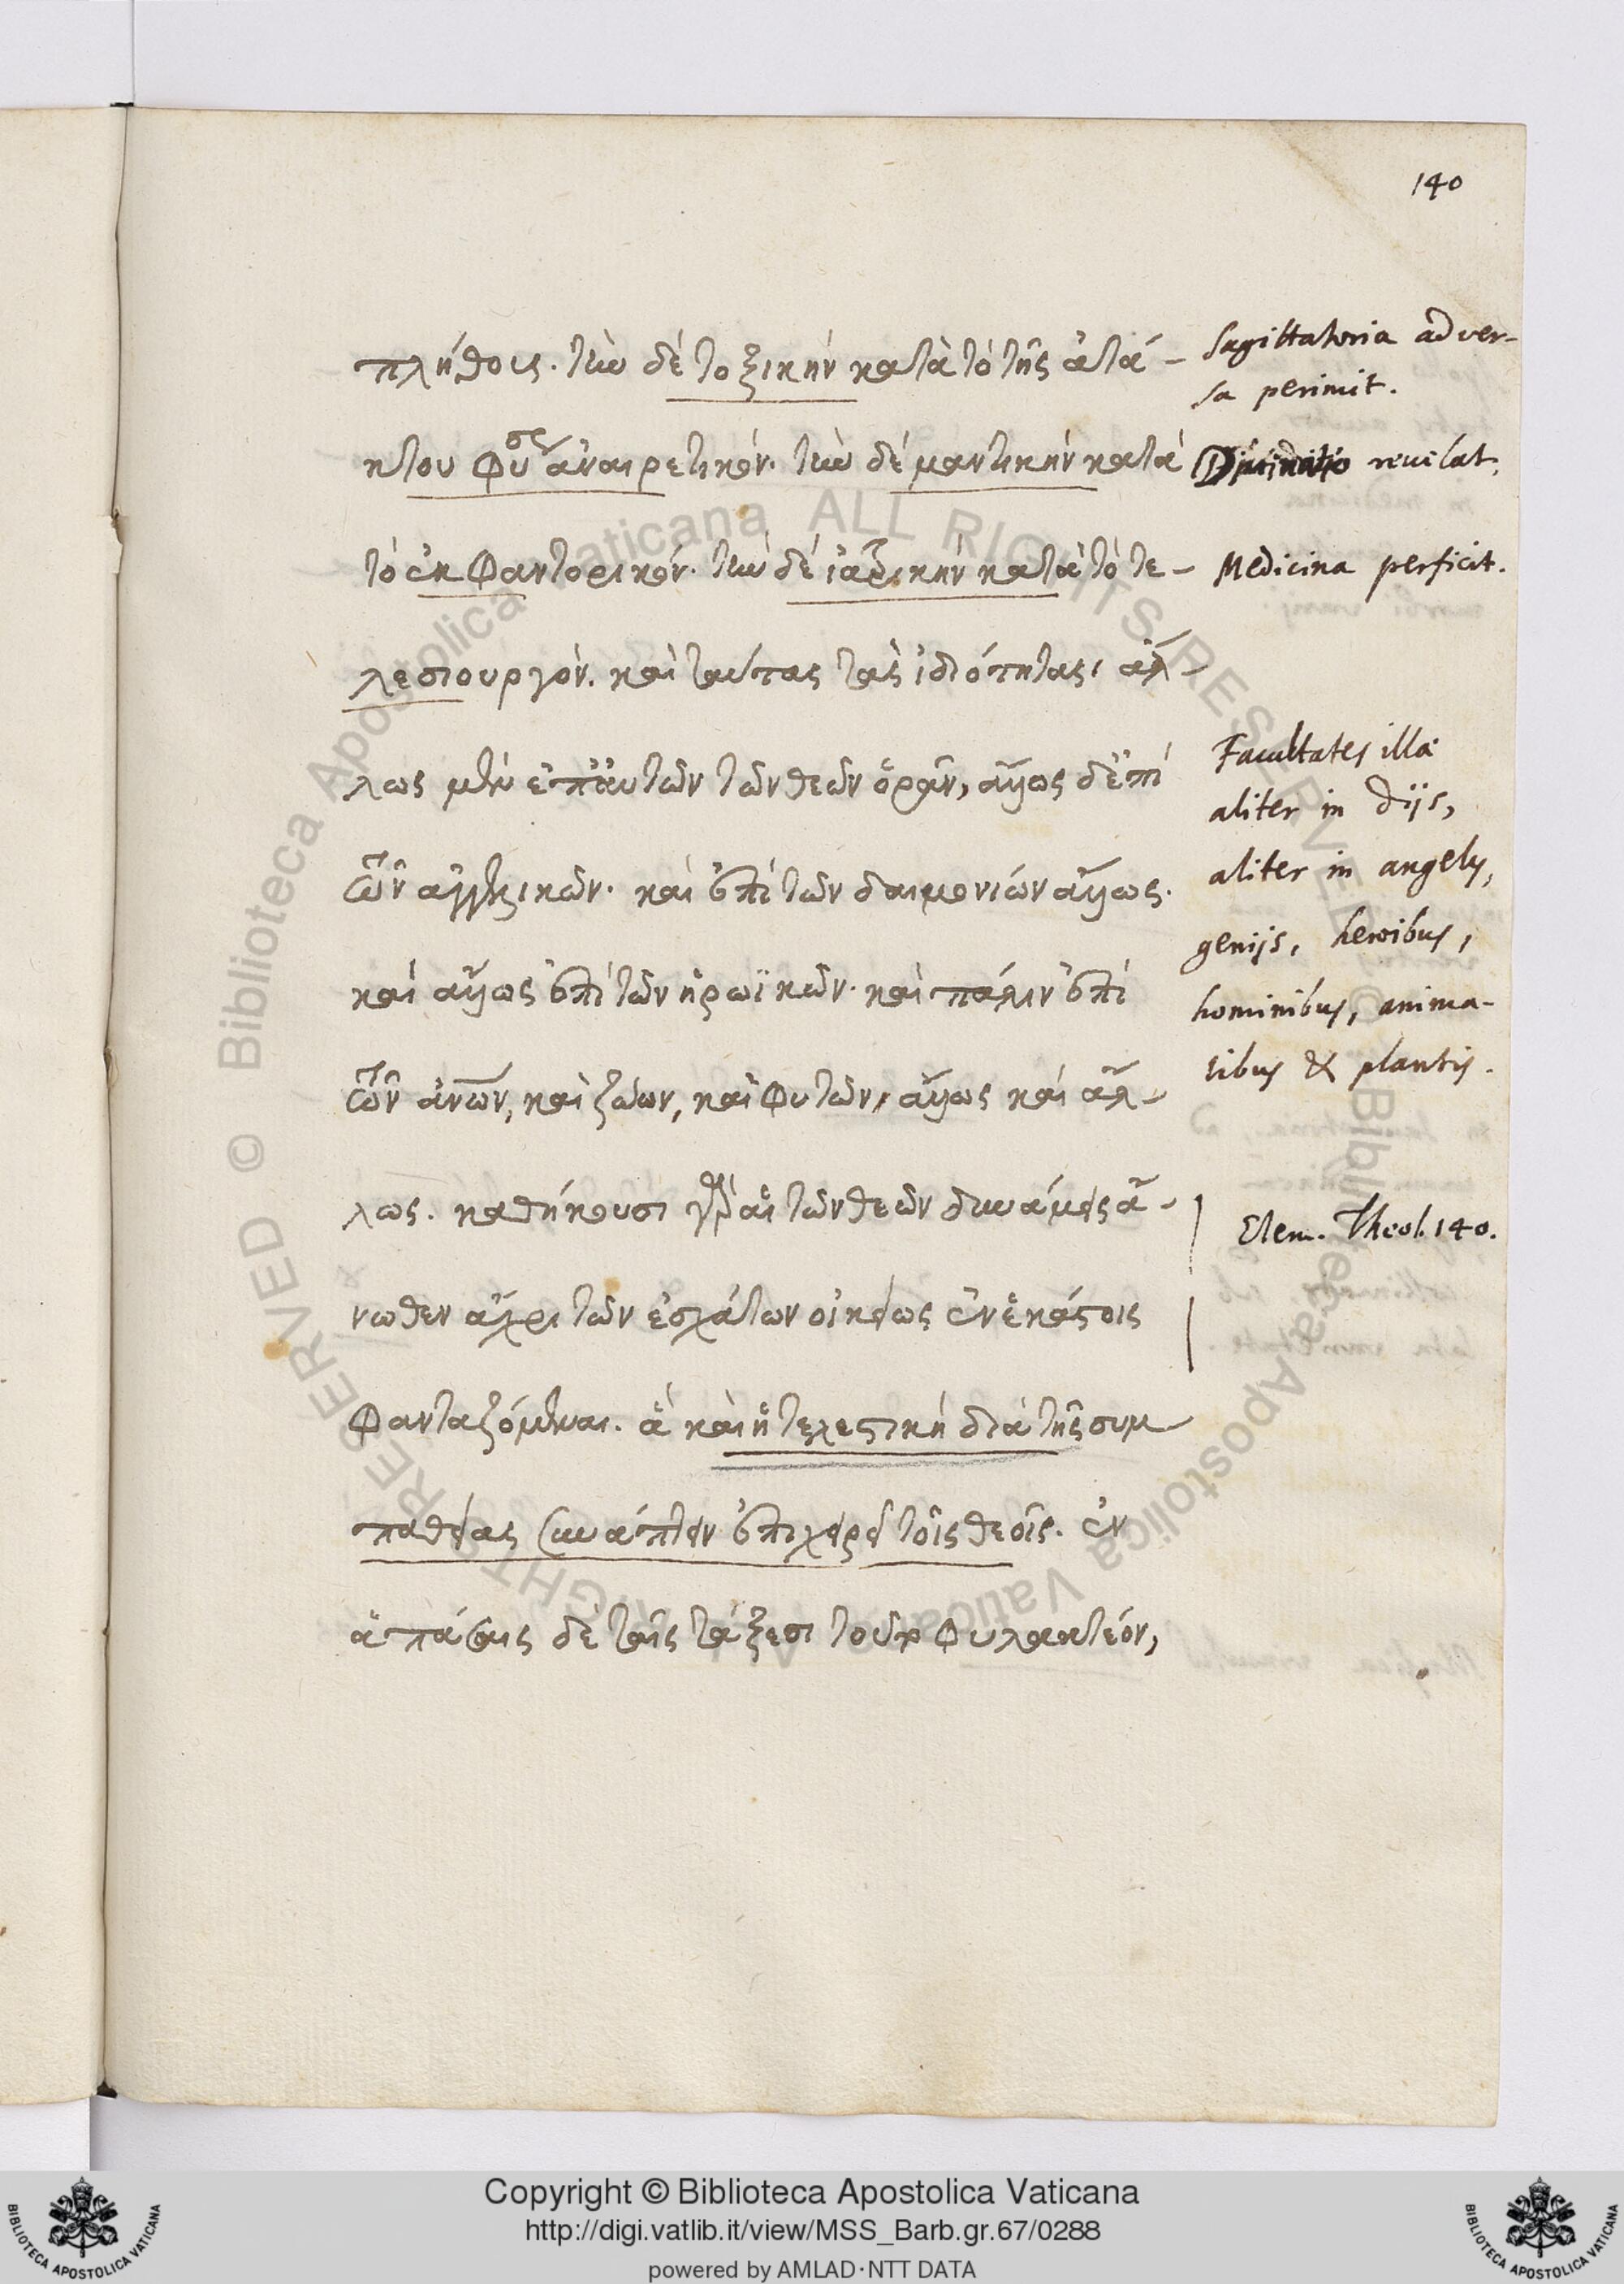 140
πλήθους. τὴν δὲ τοξικὴν κατὰ τὸ τῆς ἀτά-
κτου φύσεως ἀναιρετικόν. τὴν δὲ μαντικὴν κατὰ
τὸ ἐκφαντορικόν. τὴν δὲ ἰατρικὴν κατὰ τὸ τε-
λεσιουργόν. καὶ ταύτας τὰς ἰδιότητας, ἄλ-
λως μὲν ἐπ' αὐτῶν τῶν θεῶν ὁρᾶν, ἄλλως δ' ἐπὶ
τῶν ἀγγελικῶν. καὶ ἐπὶ τῶν δαιμονίων ἄλλως.
καὶ ἄλλως ἐπὶ τῶν ἡρωϊκῶν. καὶ πάλιν ἐπὶ
τῶν ἀνων, καὶ ζώων, καὶ φυτῶν, ἄλλως καὶ ἄλ-
λως. καθήκουσι γὰρ αἱ τῶν θεῶν δυνάμεις ἄ-
νωθεν ἄχρι τῶν ἐσχάτων οἰκείως ἐν ἑκάστοις
φανταζόμεναι. ἃ καὶ ἡ τελεστικὴ διὰ τῆς συμ-
παθείας συνάπτειν ἐπιχειρεῖ τοῖς θεοῖς. ἐν
ἁπάσαις δὲ ταῖς τάξεσι τοῦτο φυλακτέον,
Sagittatoria adver-
sa perimit.
Divinatio revelat.
Medicina perficit.
Facultates illæ
aliter in diis,
aliter in angelis,
geniis, heroibus,
hominibus, anima-
libus & plantis.
Elem. Theol. 140.
Copyright © Biblioteca Apostolica Vaticana
http://digi.vatlib.it/view/MSS_Barb.gr.67/0288
powered by AMLAD·NTT DATA
BIBLIOTECA APOSTOLICA VATICANA
BIBLIOTECA APOSTOLICA VATICANA
© Biblioteca Apostolica Vaticana ALL RIGHTS RESERVED
© Biblioteca Apostolica Vaticana ALL RIGHTS RESERVED